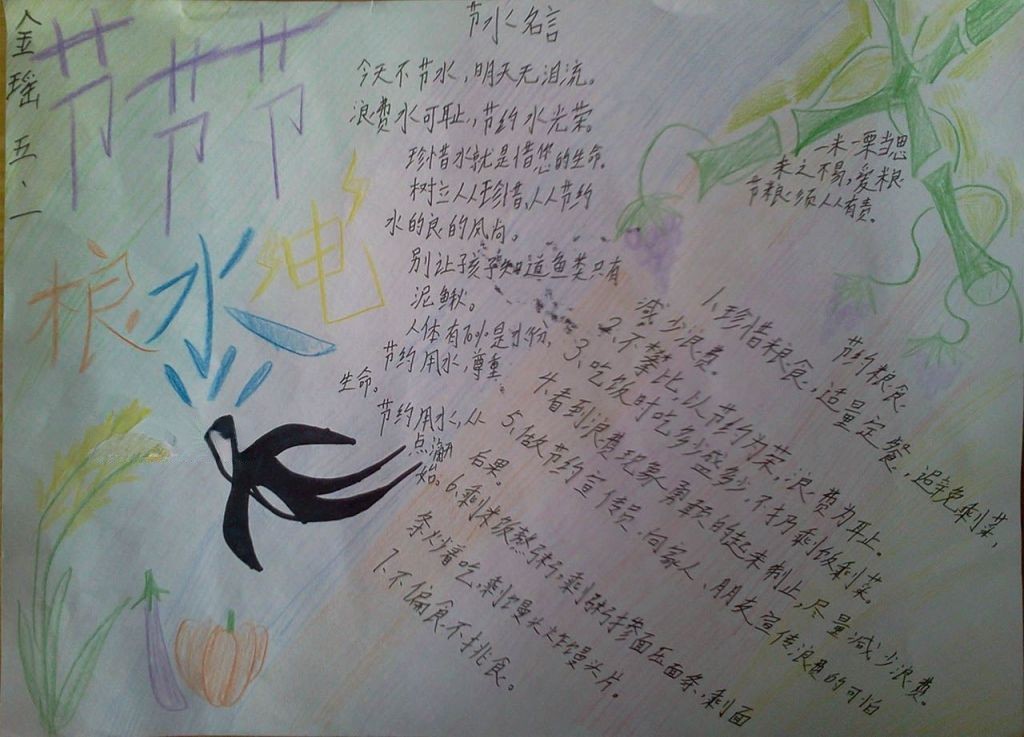 金瑶 五、二
节 节 节
粮 水 电
节水名言
今天不节水，明天无泪流。
浪费水可耻，节约水光荣。
珍惜水就是惜您的生命。
树立人人珍惜，人人节约
水的良的风尚。
别让孩子知道鱼类只有
泥鳅。
人体有70%是水份，
节约用水，尊重
生命。
节约用水，从
点滴
始。
一米一栗当思
来之不易，爱粮
节粮须人人有责。
节约粮食
1、珍惜粮食，适量定餐，避免剩菜，
减少浪费。
2、不攀比，以节约为荣，浪费为耻。
3、吃饭时吃多少盛多少，不扔剩饭剩菜。
4、看到浪费现象勇敢的起来制止，尽量减少浪费。
5、做节约宣传员，向家人、朋友宣传浪费的可怕
后果。
6、剩米饭熬粥，剩粥掺面压面条，剩面
条炒着吃，剩馒头炸馒头片。
7、不偏食不挑食。